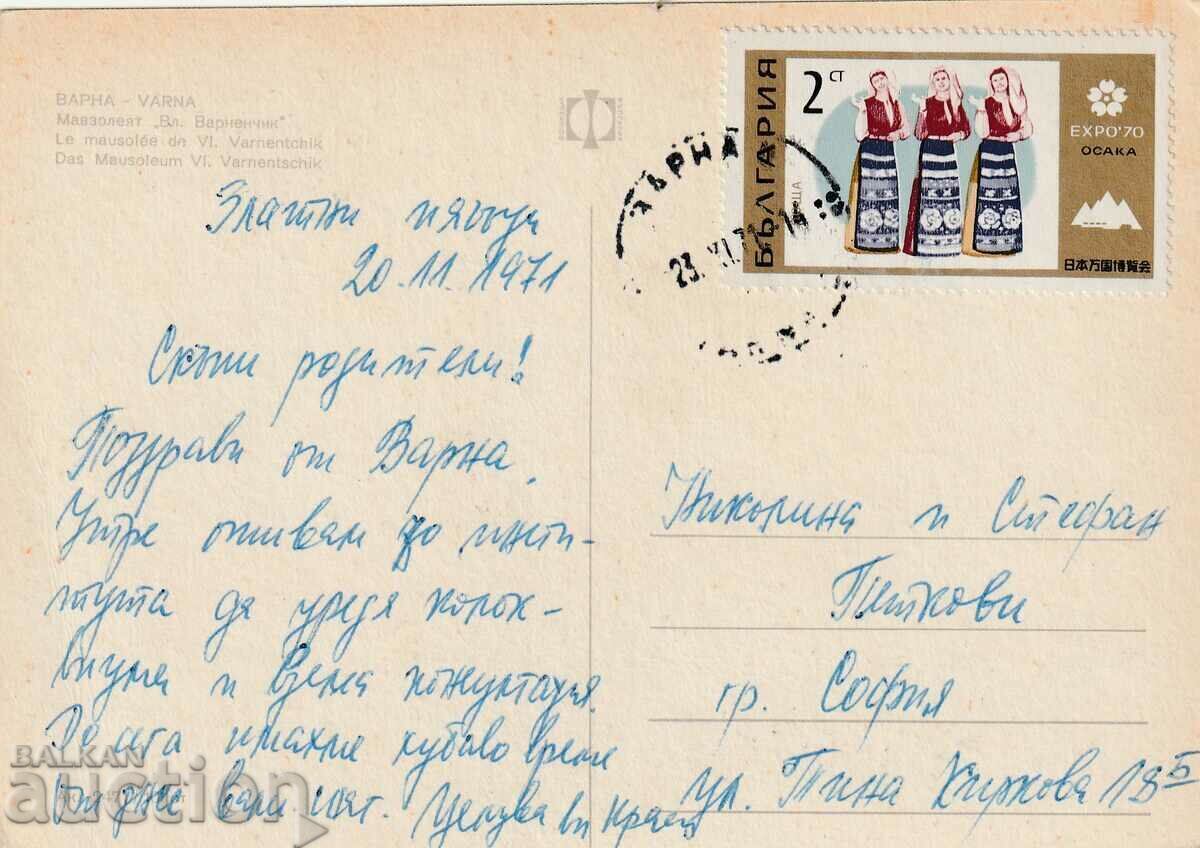 ВАРНА - VARNA
Мавзолеят „Вл. Варненчик"
Le mausolée de Vl. Varnentchik
Das Mausoleum Vl. Varnentschik
Златни пясъци
20.11.1971
Скъпи родители!
Поздрави от Варна.
Утре отивам до инсти-
тута да уредя колок-
виума и взема консултация.
До сега имахме хубаво време
но днес вали сняг. Целува ви
Николина и Стефан
Петкови
гр. София
ул. Тина Киркова 18 Б
БЪЛГАРИЯ
2 СТ
EXPO'70
ОСАКА
日本万国博覧会
ВАРНА
23. XI. 71
BALKAN
auction